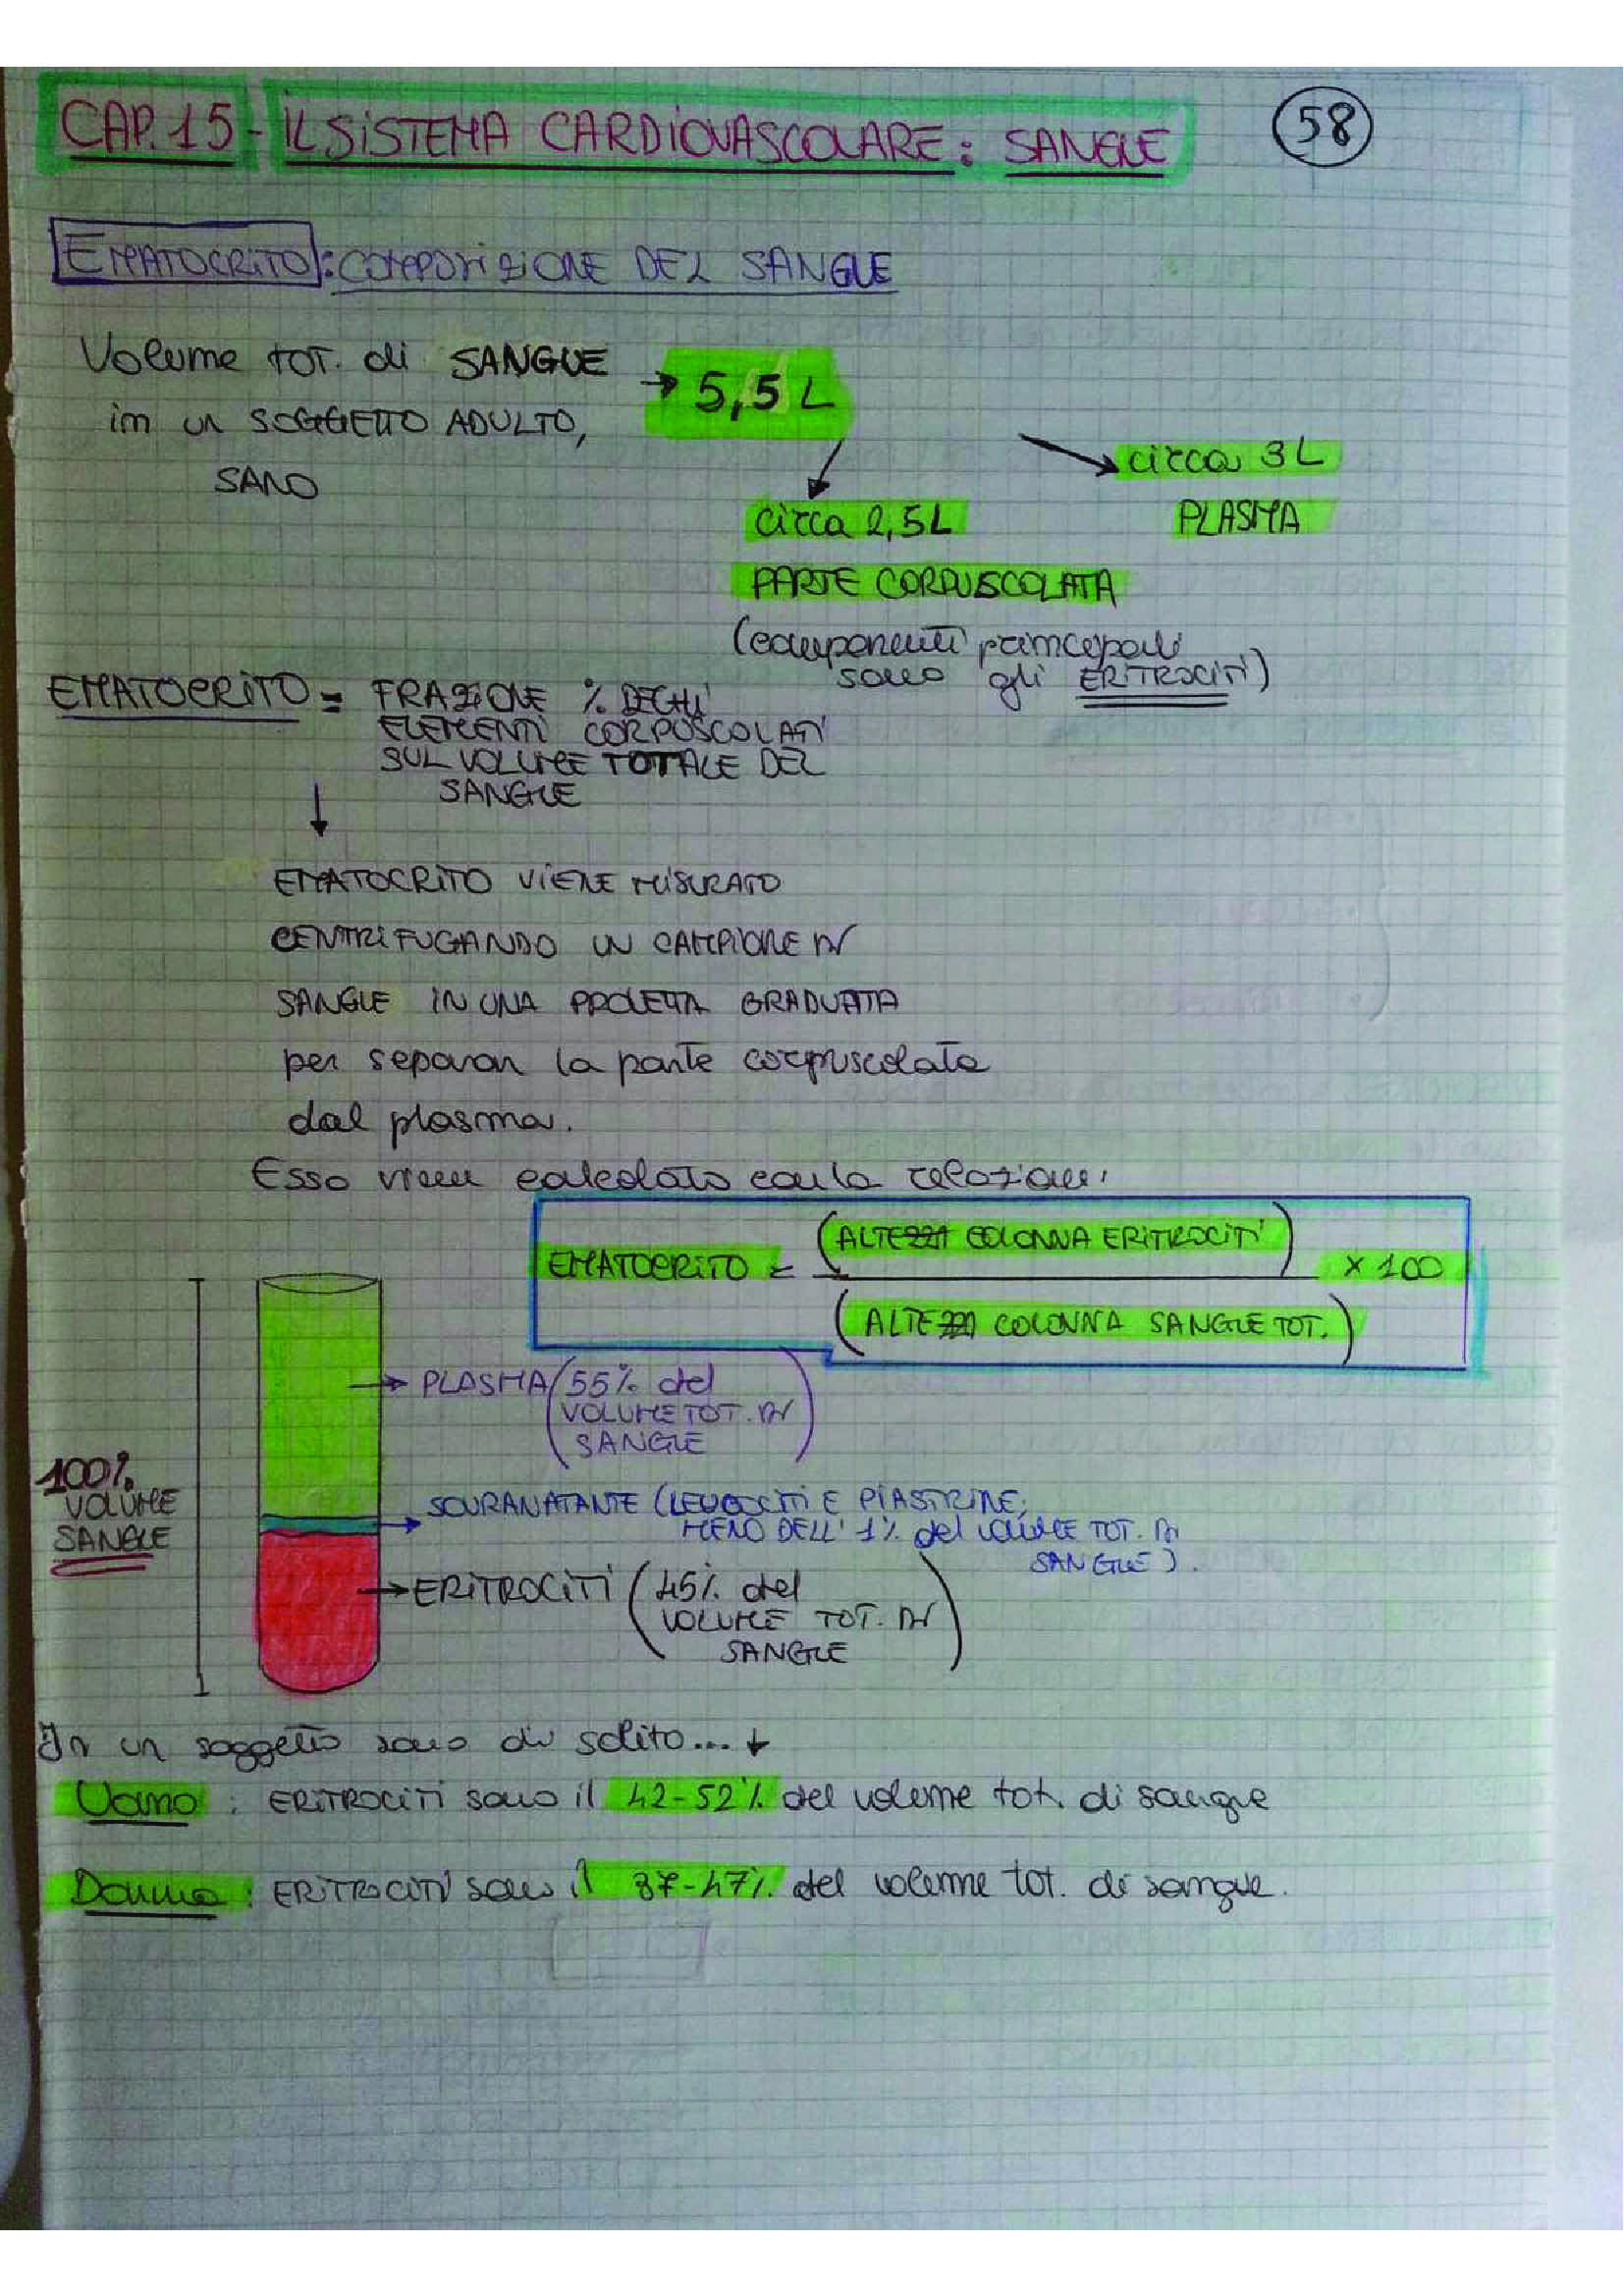 CAP. 15 - IL SISTEMA CARDIOVASCOLARE: SANGUE
58
EMATOCRITO: COMPOSIZIONE DEL SANGUE
Volume TOT. di SANGUE
→ 5,5 L
in un SOGGETTO ADULTO,
SANO
circa 3 L
PLASMA
circa 2,5 L
PARTE CORPUSCOLATA
(componenti principali
sono gli ERITROCITI)
EMATOCRITO = FRAZIONE % DEGLI
ELEMENTI CORPUSCOLATI
SUL VOLUME TOTALE DEL
SANGUE
↓
EMATOCRITO VIENE MISURATO
CENTRIFUGANDO UN CAMPIONE DI
SANGUE IN UNA PROVETTA GRADUATA
per separare la parte corpuscolata
dal plasma.
Esso viene calcolato con la relazione:
EMATOCRITO = (ALTEZZA COLONNA ERITROCITI) x 100
(ALTEZZA COLONNA SANGUE TOT.)
→ PLASMA (55% del
VOLUME TOT. DI
SANGUE)
100%
VOLUME
SANGUE
→ SOVRANATANTE (LEUCOCITI E PIASTRINE,
MENO DELL'1% del VOLUME TOT. DI
SANGUE).
→ ERITROCITI (45% del
VOLUME TOT. DI
SANGUE)
In un soggetto sano di solito... ↓
Uomo: ERITROCITI sono il 42-52% del volume tot. di sangue
Donna: ERITROCITI sono il 37-47% del volume tot. di sangue.